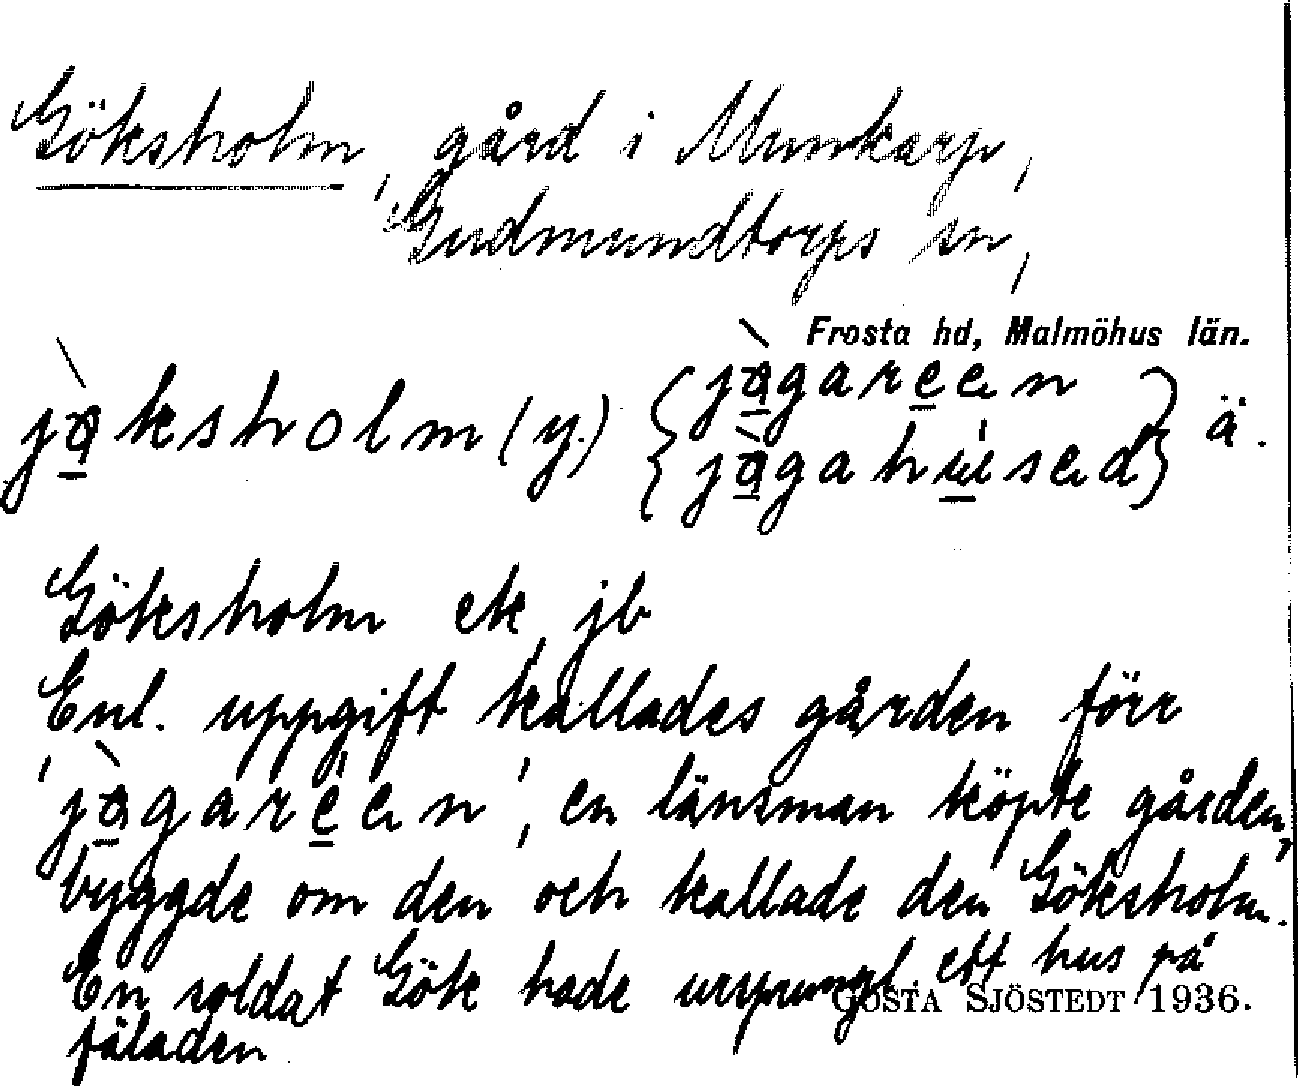 Göksholm, gård i Munkarp,
Gudmundtorps sn,
Frosta hd, Malmöhus län.
jøksholm (y.) { jøgareen
jøgahused } ä.
Göksholm ek, jb
Enl. uppgift kallades gården förr
'jøgareen', en länsman köpte gården,
byggde om den och kallade den Göksholm.
En soldat Gök hade urspungl. ett hus på
fäladen
GÖSTA SJÖSTEDT 1936.